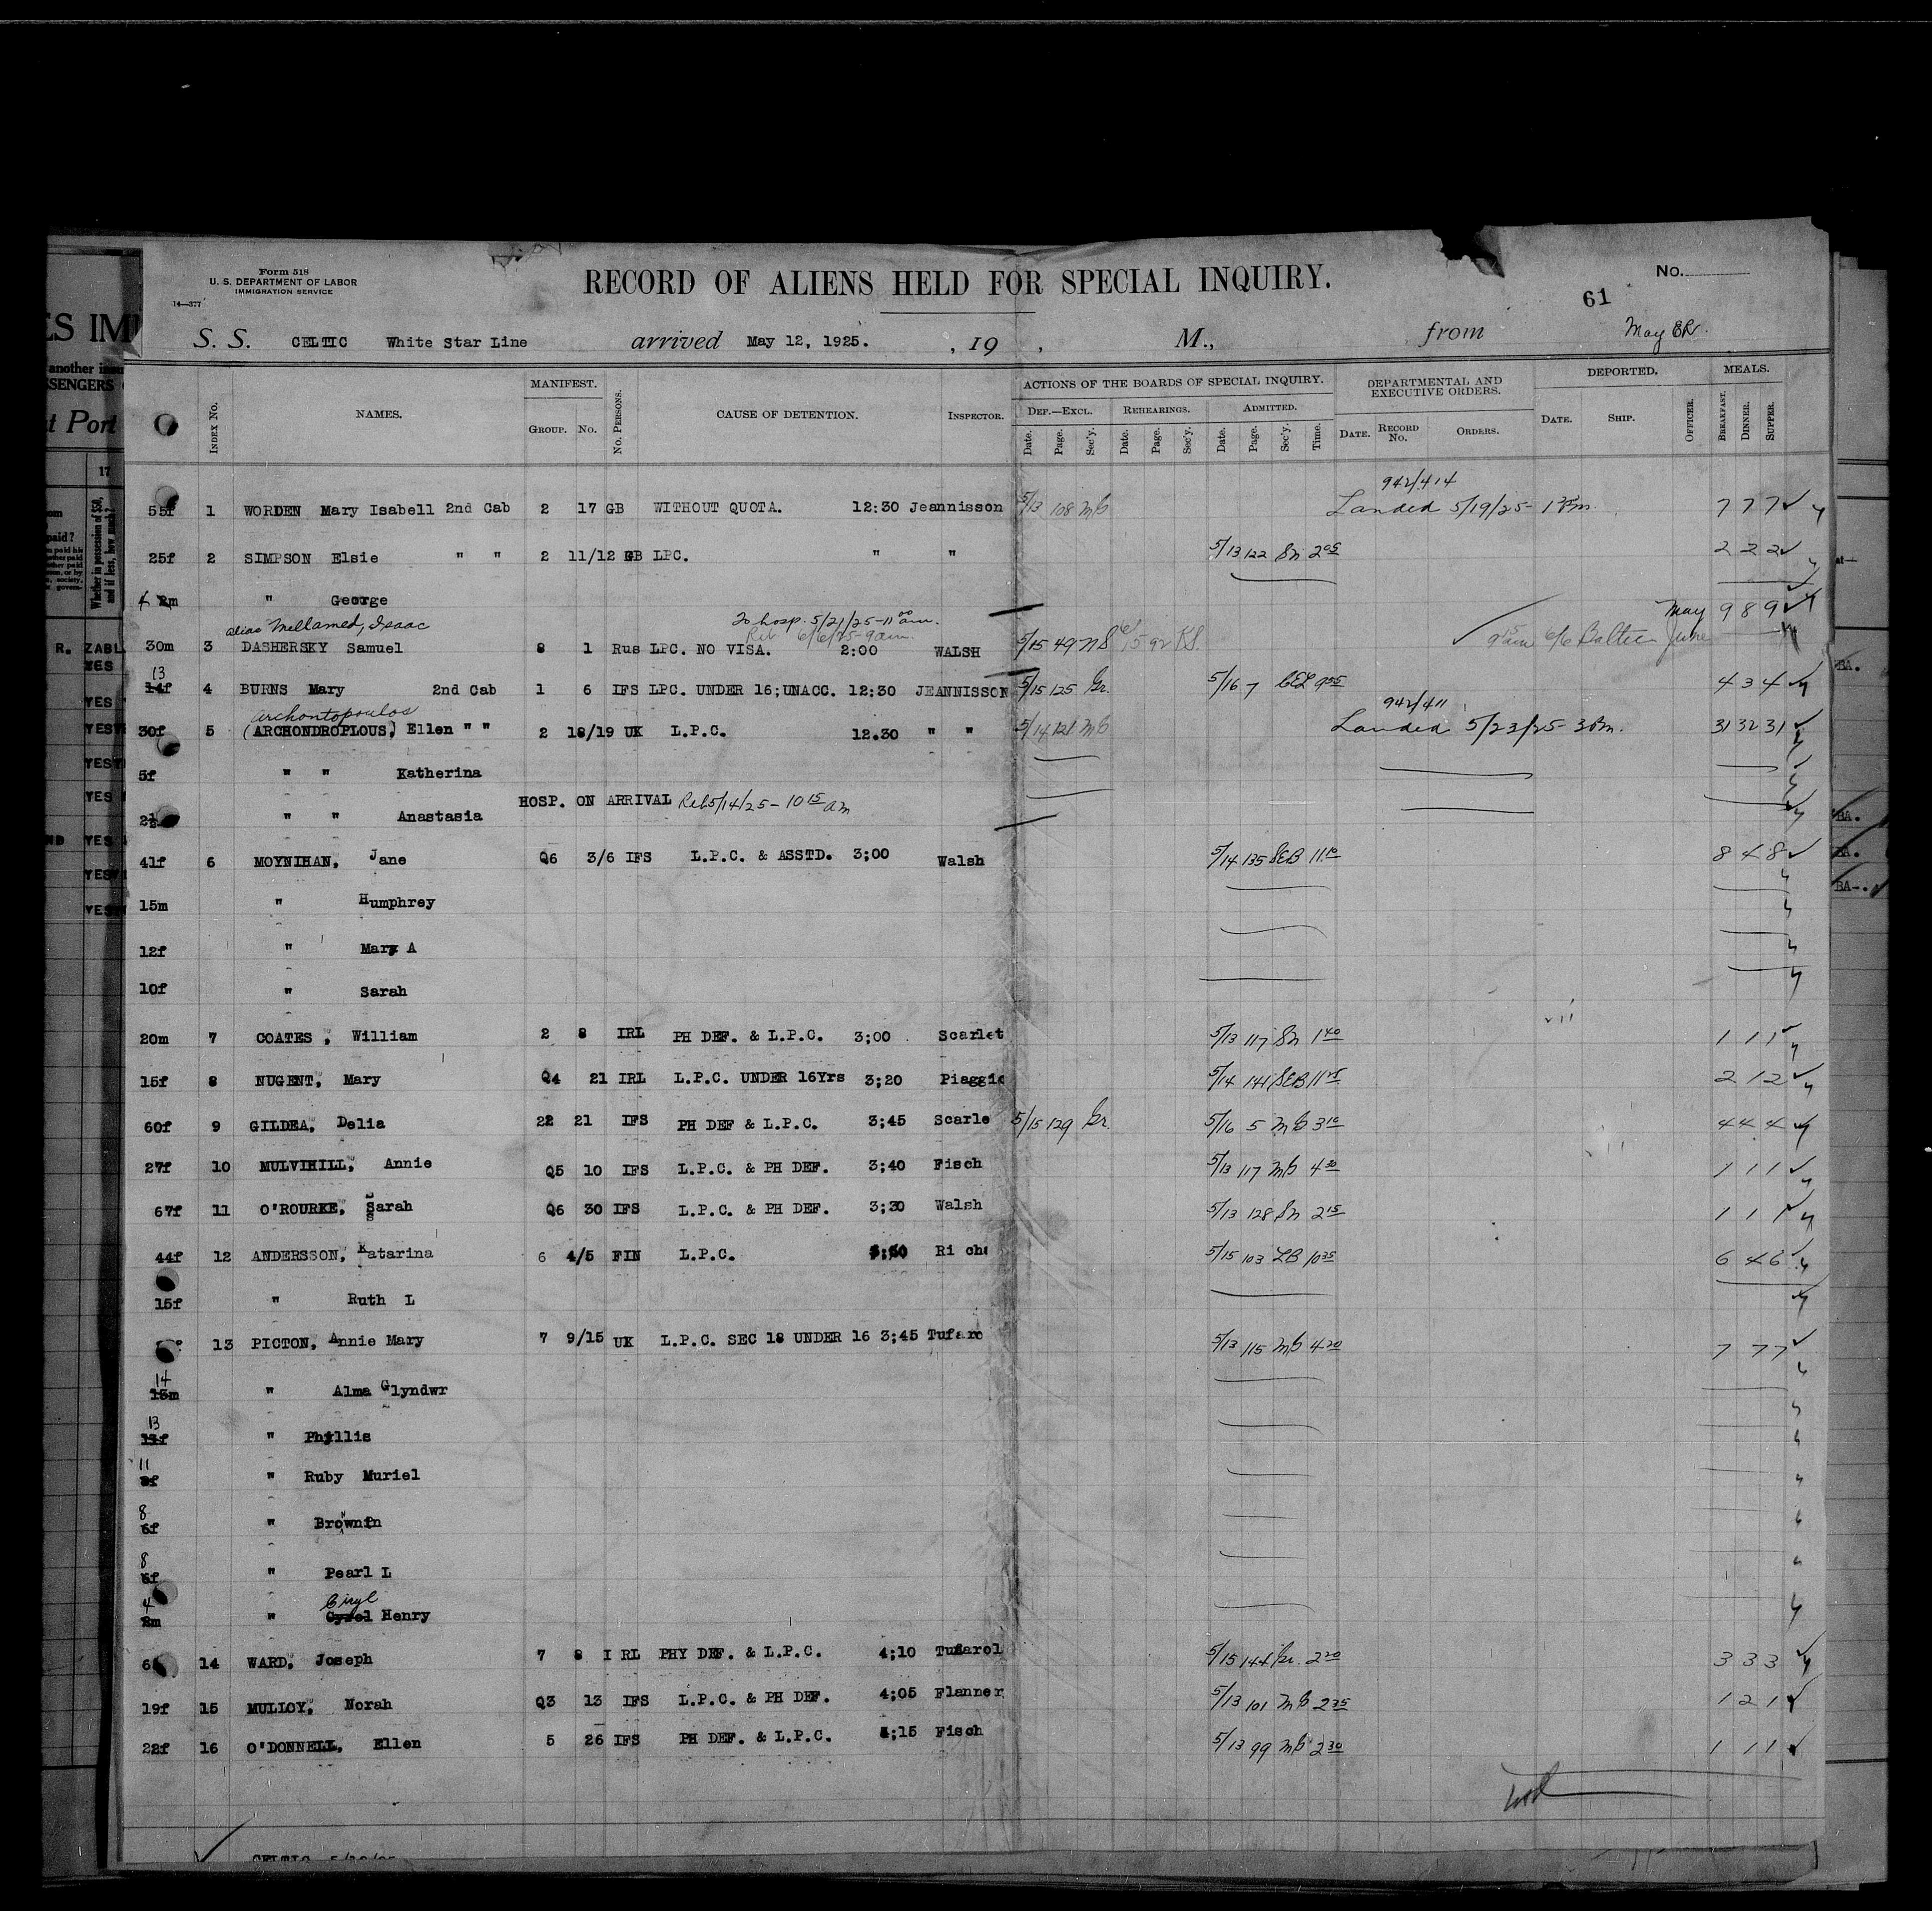 Form 518
U. S. DEPARTMENT OF LABOR
IMMIGRATION SERVICE
14—377
RECORD OF ALIENS HELD FOR SPECIAL INQUIRY.
No.
61
S. S. CELTIC White Star Line arrived May 12, 1925. , 19 , M., from May
INDEX No. NAMES. MANIFEST. GROUP. No. No. PERSONS. CAUSE OF DETENTION. INSPECTOR. ACTIONS OF THE BOARDS OF SPECIAL INQUIRY. DEPARTMENTAL AND EXECUTIVE ORDERS. DEPORTED. MEALS.
DEF.—EXCL. REHEARINGS. ADMITTED.
Date. Page. Sec'y. Date. Page. Sec'y. Date. Page. Sec'y. Time. DATE. RECORD No. ORDERS. DATE. SHIP. OFFICER. BREAKFAST. DINNER. SUPPER.
942/414
55f 1 WORDEN Mary Isabell 2nd Cab 2 17 GB WITHOUT QUOTA. 12:30 Jeannisson 5/13 108 Landed 5/19/25- 7 7 7
25f 2 SIMPSON Elsie " " 2 11/12 GB LPC. " " 5/13 122 Sn 2 05 2 2 2
" George
alias Mellamed, Isaac To hosp. 5/21/25-11 00 am. May 9 8 9
Rel 6/6/25-9am.
30m 3 DASHERSKY Samuel 8 1 Rus LPC. NO VISA. 2:00 WALSH 5/15 49 NS 6/6 Baltic June
13
14f 4 BURNS Mary 2nd Cab 1 6 IFS LPC. UNDER 16;UNACC. 12:30 JEANNISSON 5/15 125 Gr. 5/16 7 CEL 9 55 4 3 4
Archontopoulos 942/411
30f 5 (ARCHONDROPLOUS) Ellen " " 2 18/19 UK L.P.C. 12.30 " " 5/14 121 Landed 5/23/25- 3 pm. 31 32 31
5f " " Katherina
HOSP. ON ARRIVAL Rel 5/14/25- 10 15 am
2½ " " Anastasia
41f 6 MOYNIHAN, Jane Q6 3/6 IFS L.P.C. & ASSTD. 3;00 Walsh 5/14 135 SEB 11 10 8 4 8
15m " Humphrey
12f " Mary A
10f " Sarah
20m 7 COATES, William 2 8 IRL PH DEF. & L.P.C. 3;00 Scarlet 5/13 117 Sn 1 40 1 1 1
15f 8 NUGENT, Mary Q4 21 IRL L.P.C. UNDER 16Yrs 3;20 Piaggio 5/14 141 SEB 11 25 2 1 2
60f 9 GILDEA, Delia 22 21 IFS PH DEF & L.P.C. 3;45 Scarle 5/15 129 Gr. 5/16 5 3 10 4 4 4
27f 10 MULVIHILL, Annie Q5 10 IFS L.P.C. & PH DEF. 3;40 Fisch 5/13 117 4 30 1 1 1
67f 11 O'ROURKE, Sarah Q6 30 IFS L.P.C. & PH DEF. 3;30 Walsh 5/13 128 Sn 2 15 1 1 1
44f 12 ANDERSSON, Katarina 6 4/5 FIN L.P.C. Rich 5/15 103 LB 10 35 6 4 6
15f " Ruth L
13 PICTON, Annie Mary 7 9/15 UK L.P.C. SEC 18 UNDER 16 3;45 Tufaro 5/13 115 4 20 7 7 7
14
13m " Alma Glyndwr
13
11f " Phyllis
11
" Ruby Muriel
8
6f " Brownin
8
6f " Pearl L
4 Ciryl
2m " Cyrel Henry
14 WARD, Joseph 7 8 I RL PHY DEF. & L.P.C. 4;10 Tufarol 5/15 144 Gr. 2 20 3 3 3
19f 15 MULLOY, Norah Q3 13 IFS L.P.C. & PH DEF. 4;05 Flanner 5/13 101 2 35 1 2 1
22f 16 O'DONNELL, Ellen 5 26 IFS PH DEF. & L.P.C. 4;15 Fisch 5/13 99 2 30 1 1 1